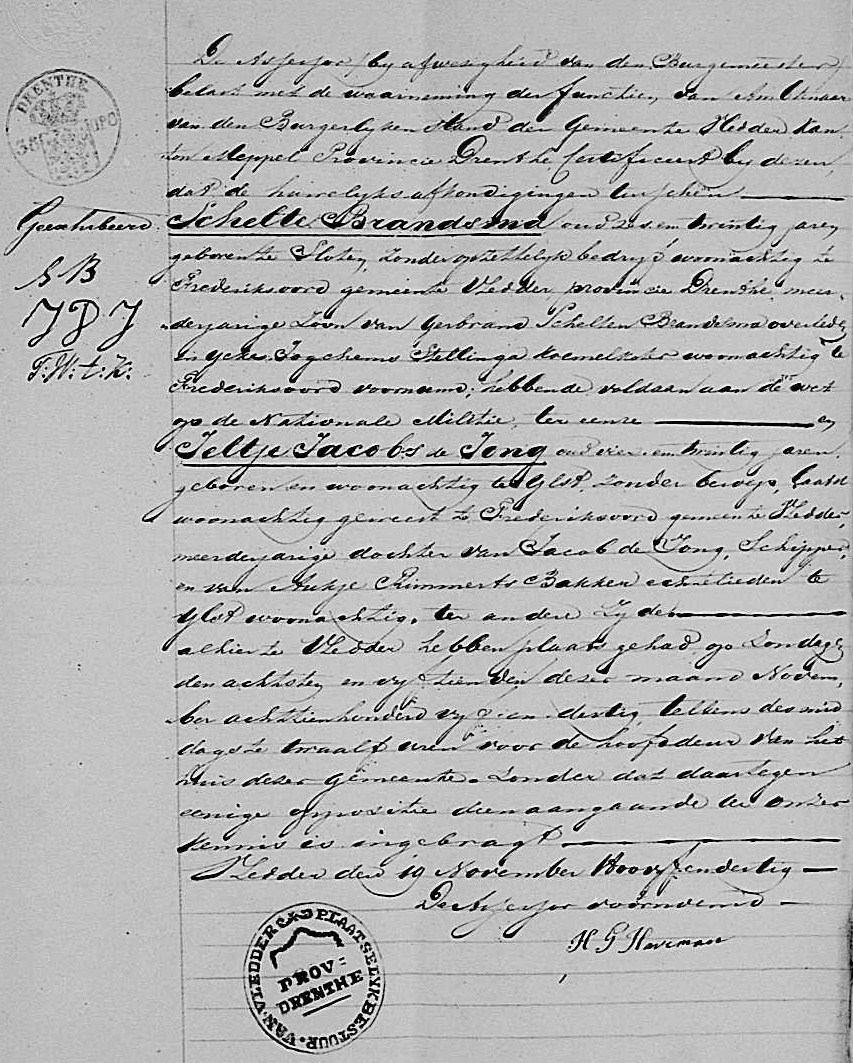 De Assessor /by afwezigheid van den Burgemeester/
belast met de waarneming der functien van Ambtenaar
van den Burgerlyken Stand der Gemeente Vledder Kan-
ton Meppel Provincie Drenthe certificeert by dezen,
dat de huwelyks afkondigingen tusschen
Schelte Brandsma oud zes en twintig jaren
geboren te Sloten, zonder opzettelyk bedryf woonachtig te
Frederiksoord gemeente Vledder, provincie Drenthe, meer-
derjarige Zoon van Gerbrand Scheltes Brandsma overleden
en Ycke Jogchems Stellinga woonachtig te
Frederiksoord voornoemd; hebbende voldaan aan de wet
op de Nationale Militie, ter eenre en
Jeltje Jacobs de Jong oud vier en twintig jaren
geboren en woonachtig te Ylst, zonder beroep, laatst
woonachtig geweest te Frederiksoord gemeente Vledder,
meerderjarige dochter van Jacob de Jong, Schipper,
en van Aukje Rimmerts Bakker echtelieden te
Ylst woonachtig, ter andere Zyde
alhier te Vledder hebben plaats gehad op Zondagen
den achtsten en vyftienden dezer maand Novem-
ber achttienhonderd vyf en dertig telkens des mid
dags te twaalf uren voor de hoofddeur van het
huis dezer Gemeente. Zonder dat daartegen
eenige oppositie dienaangaande ter onzer
kennis is ingebragt
Vledder den 19 November 18 vyf en dertig
De Assessor voornoemd
DRENTHE
Geexhibeerd
S B
J P J
VAN VLEDDER PLAATSELYK BESTUUR
PROV=
DRENTHE